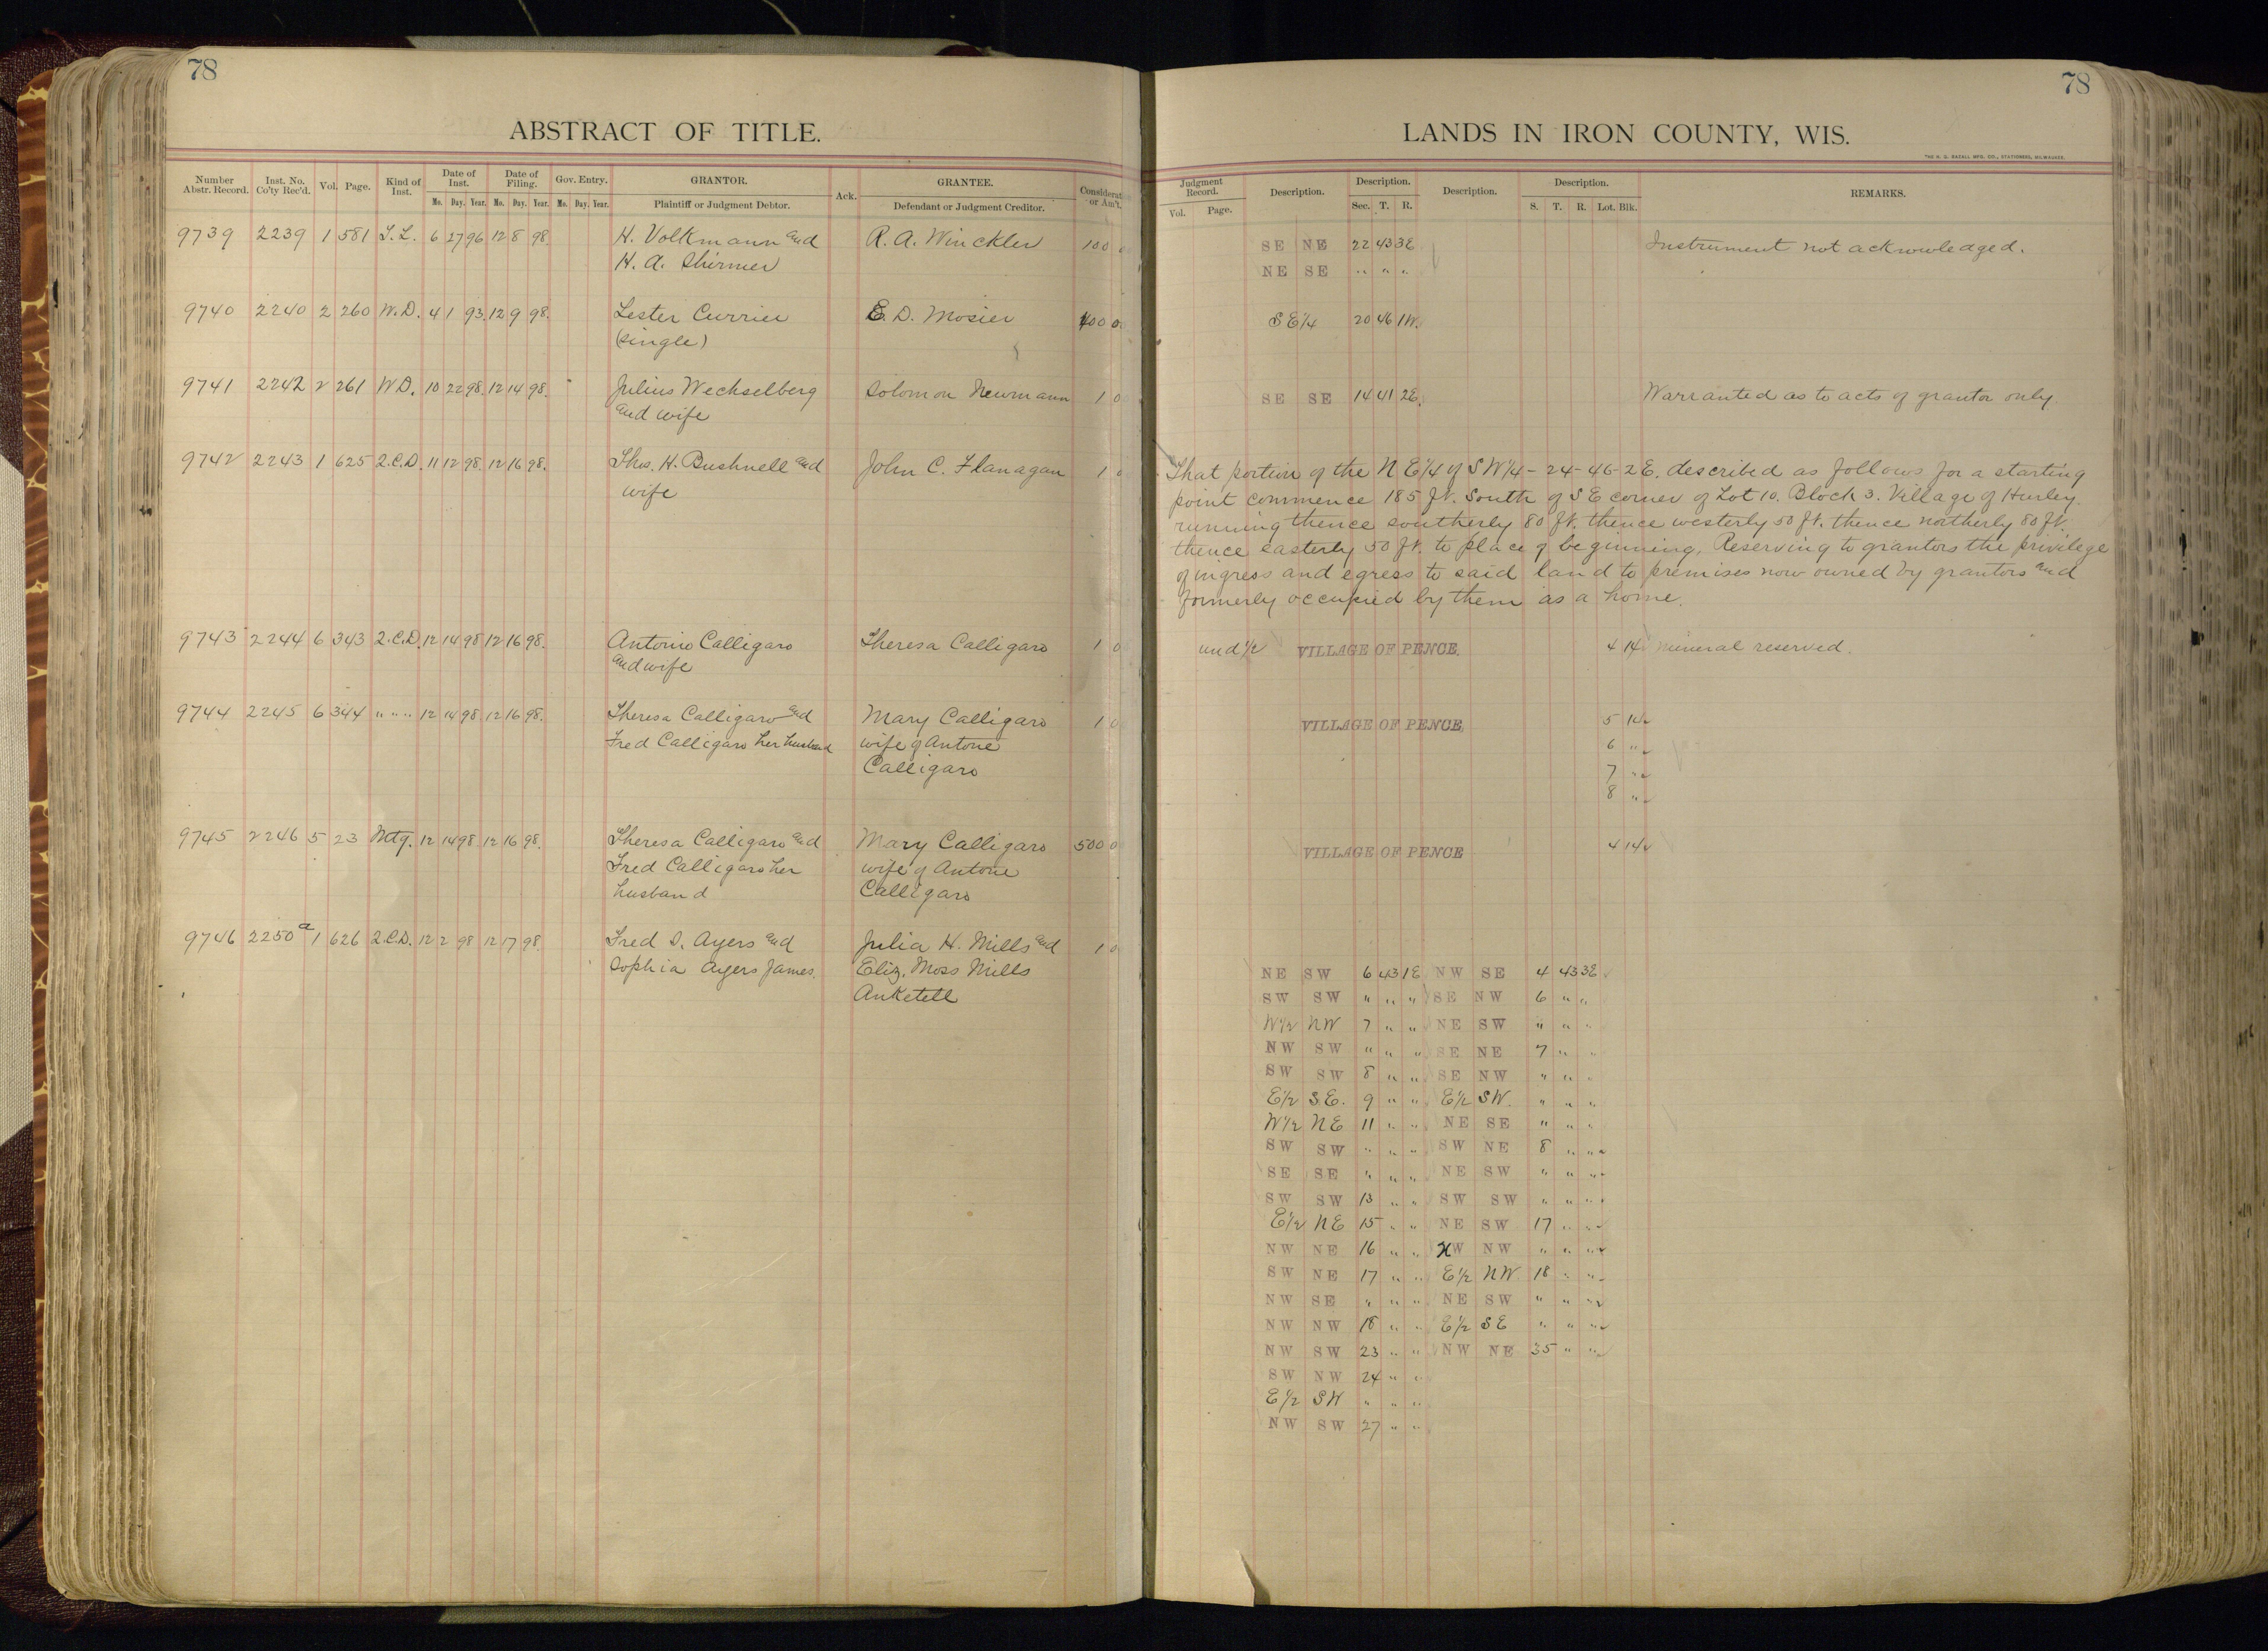 78
ABSTRACT OF TITLE.
Number Abstr. Record. Inst. No. Co'ty Rec'd. Vol. Page. Kind of Inst. Date of Inst. Date of Filing. Gov. Entry. GRANTOR. Ack. GRANTEE. Considerat or Am't.
Mo. Day. Year. Mo. Day. Year. Mo. Day. Year. Plaintiff or Judgment Debtor. Defendant or Judgment Creditor.
9739 2239 1 581 6 27 96 12 8 98. H. Volkmann and R. A. Winckler 100
H. A. Shirmer
9740 2240 2 260 W.D. 4 1 93. 12 9 98. Lester Currier E. D. Mosier 400
(single)
9741 2242 2 261 W.D. 10 22 98. 12 14 98. Julius Wechselberg Solomon Newmann 1
and wife
9742 2243 1 625 2.C.D. 11 12 98. 12 16 98. Thos. H. Bushnell and John C. Flanagan 1
wife
9743 2244 6 343 2.C.D. 12 14 98 12 16 98. Antonio Calligaro Theresa Calligaro 1
and wife
9744 2245 6 344 " " " 12 14 98 12 16 98. Theresa Calligaro and Mary Calligaro 1
Fred Calligaro her husband wife of Antone
Calligaro
9745 2246 5 23 Mtg. 12 14 98. 12 16 98. Theresa Calligaro and Mary Calligaro 500
Fred Calligaro her wife of Antone
husband Calligaro
9746 2250a 1 626 2.C.D. 12 2 98 12 17 98. Fred D. Ayers and Julia H. Mills and 1
Sophia Ayers James. Eliz. Moss Mills
Anketell
78
LANDS IN IRON COUNTY, WIS.
Judgment Record. Description. Description. Description. Description. REMARKS.
Vol. Page. Sec. T. R. S. T. R. Lot. Blk.
SE NE 22 43 3E Instrument not acknowledged.
NE SE " " "
SE1/4 20 46 1W.
SE SE 14 41 2E. Warranted as to acts of grantor only.
That portion of the NE1/4 of SW1/4 - 24 - 46 - 2E. described as follows for a starting
point commence 185 ft. South of SE corner of Lot 10. Block 3. Village of Hurley.
running thence southerly 80 ft. thence westerly 50 ft. thence northerly 80 ft.
thence easterly 50 ft. to place of beginning. Reserving to grantors the privilege
of ingress and egress to said land to premises now owned by grantors and
formerly occupied by them as a home.
und 1/2 VILLAGE OF PENCE. 4 14 mineral reserved.
VILLAGE OF PENCE, 5 14
6 "
7 "
8 "
VILLAGE OF PENCE 4 14
NE SW 6 43 1E NW SE 4 43 3E
SW SW " " " SE NW 6 " "
W1/2 NW 7 " " NE SW " " "
NW SW " " " SE NE 7 " "
SW SW 8 " " SE NW " " "
E1/2 S.E. 9 " " E1/2 SW. " " "
W1/2 NE 11 " " NE SE " " "
SW SW " " " SW NE 8 " "
SE SE " " " NE SW " " "
SW SW 13 " " SW SW " " "
E1/2 NE 15 " " NE SW 17 " "
NW NE 16 " " NW NW " " "
SW NE 17 " " E1/2 NW. 18 " "
NW SE " " " NE SW " " "
NW NW 18 " " E1/2 SE " " "
NW SW 23 " " NW NE 35 " "
SW NW 24 " "
E1/2 SW " " "
NW SW 27 " "